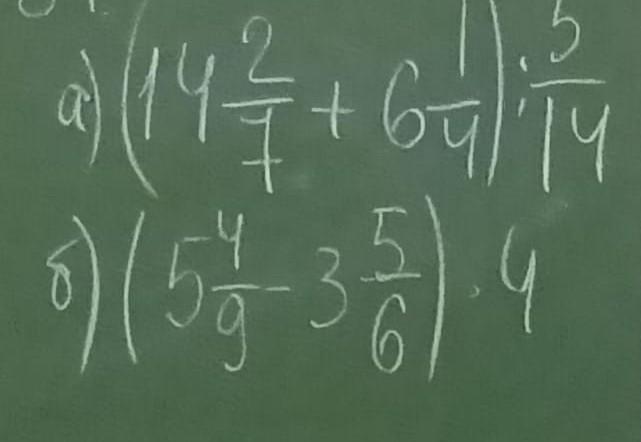 а) (14 2/7 + 6 1/4) : 5/14
б) (5 4/9 - 3 5/6) · 4